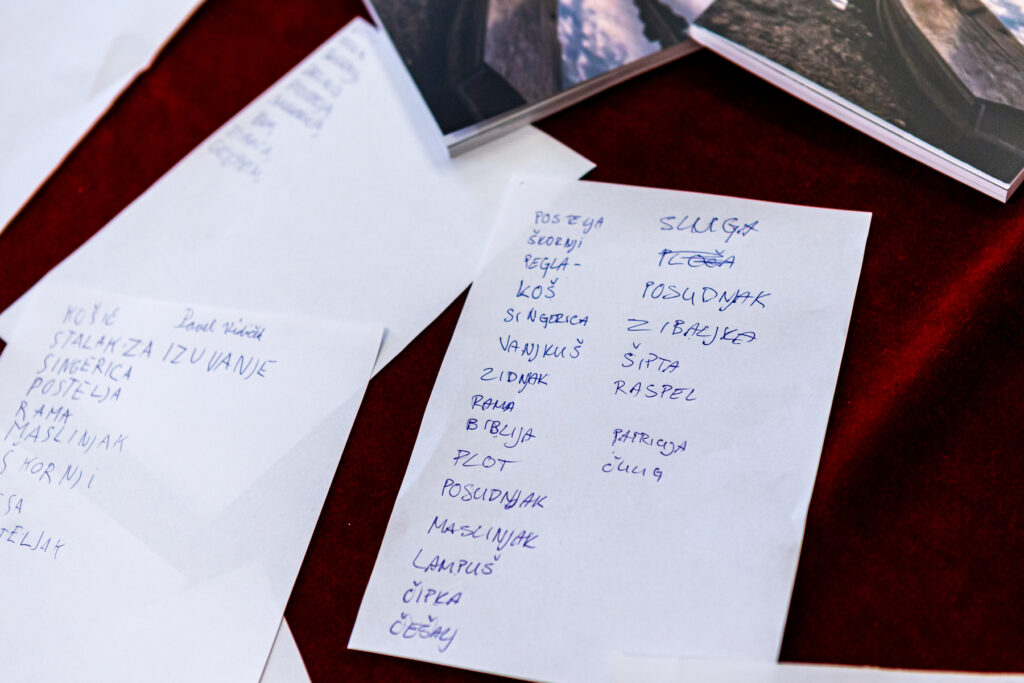 KOŠIĆ
Pavel
STALAK ZA IZUVANJE
SINGERICA
POSTELJA
RAMA
MASLINJAK
ŠKORNJI
SA
TELJAK
POSTELJA
ŠKORNJI
PEGLA -
KOŠ
SINGERICA
VANJKUŠ
ZIDNJAK
RAMA
BIBLIJA
PLOT
POSUDNJAK
MASLINJAK
LAMPUŠ
ČIPKA
ČEŠALJ
SLUGA
PLOČA
POSUDNJAK
ZIBALJKA
ŠIPTA
RASPEL
PATRICIJA
ČULIG